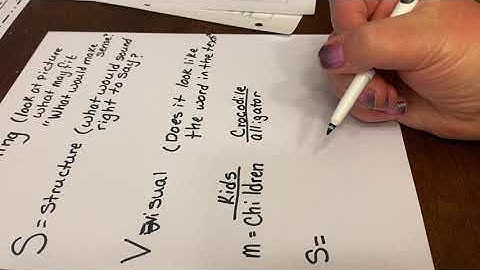 ing (look at picture
what may fit
"What would make
sense?
S = Structure (what would sound
right to say?
V visual (Does it look like
the word in the text?
Kids Crocodile
m = Children alligator
S=